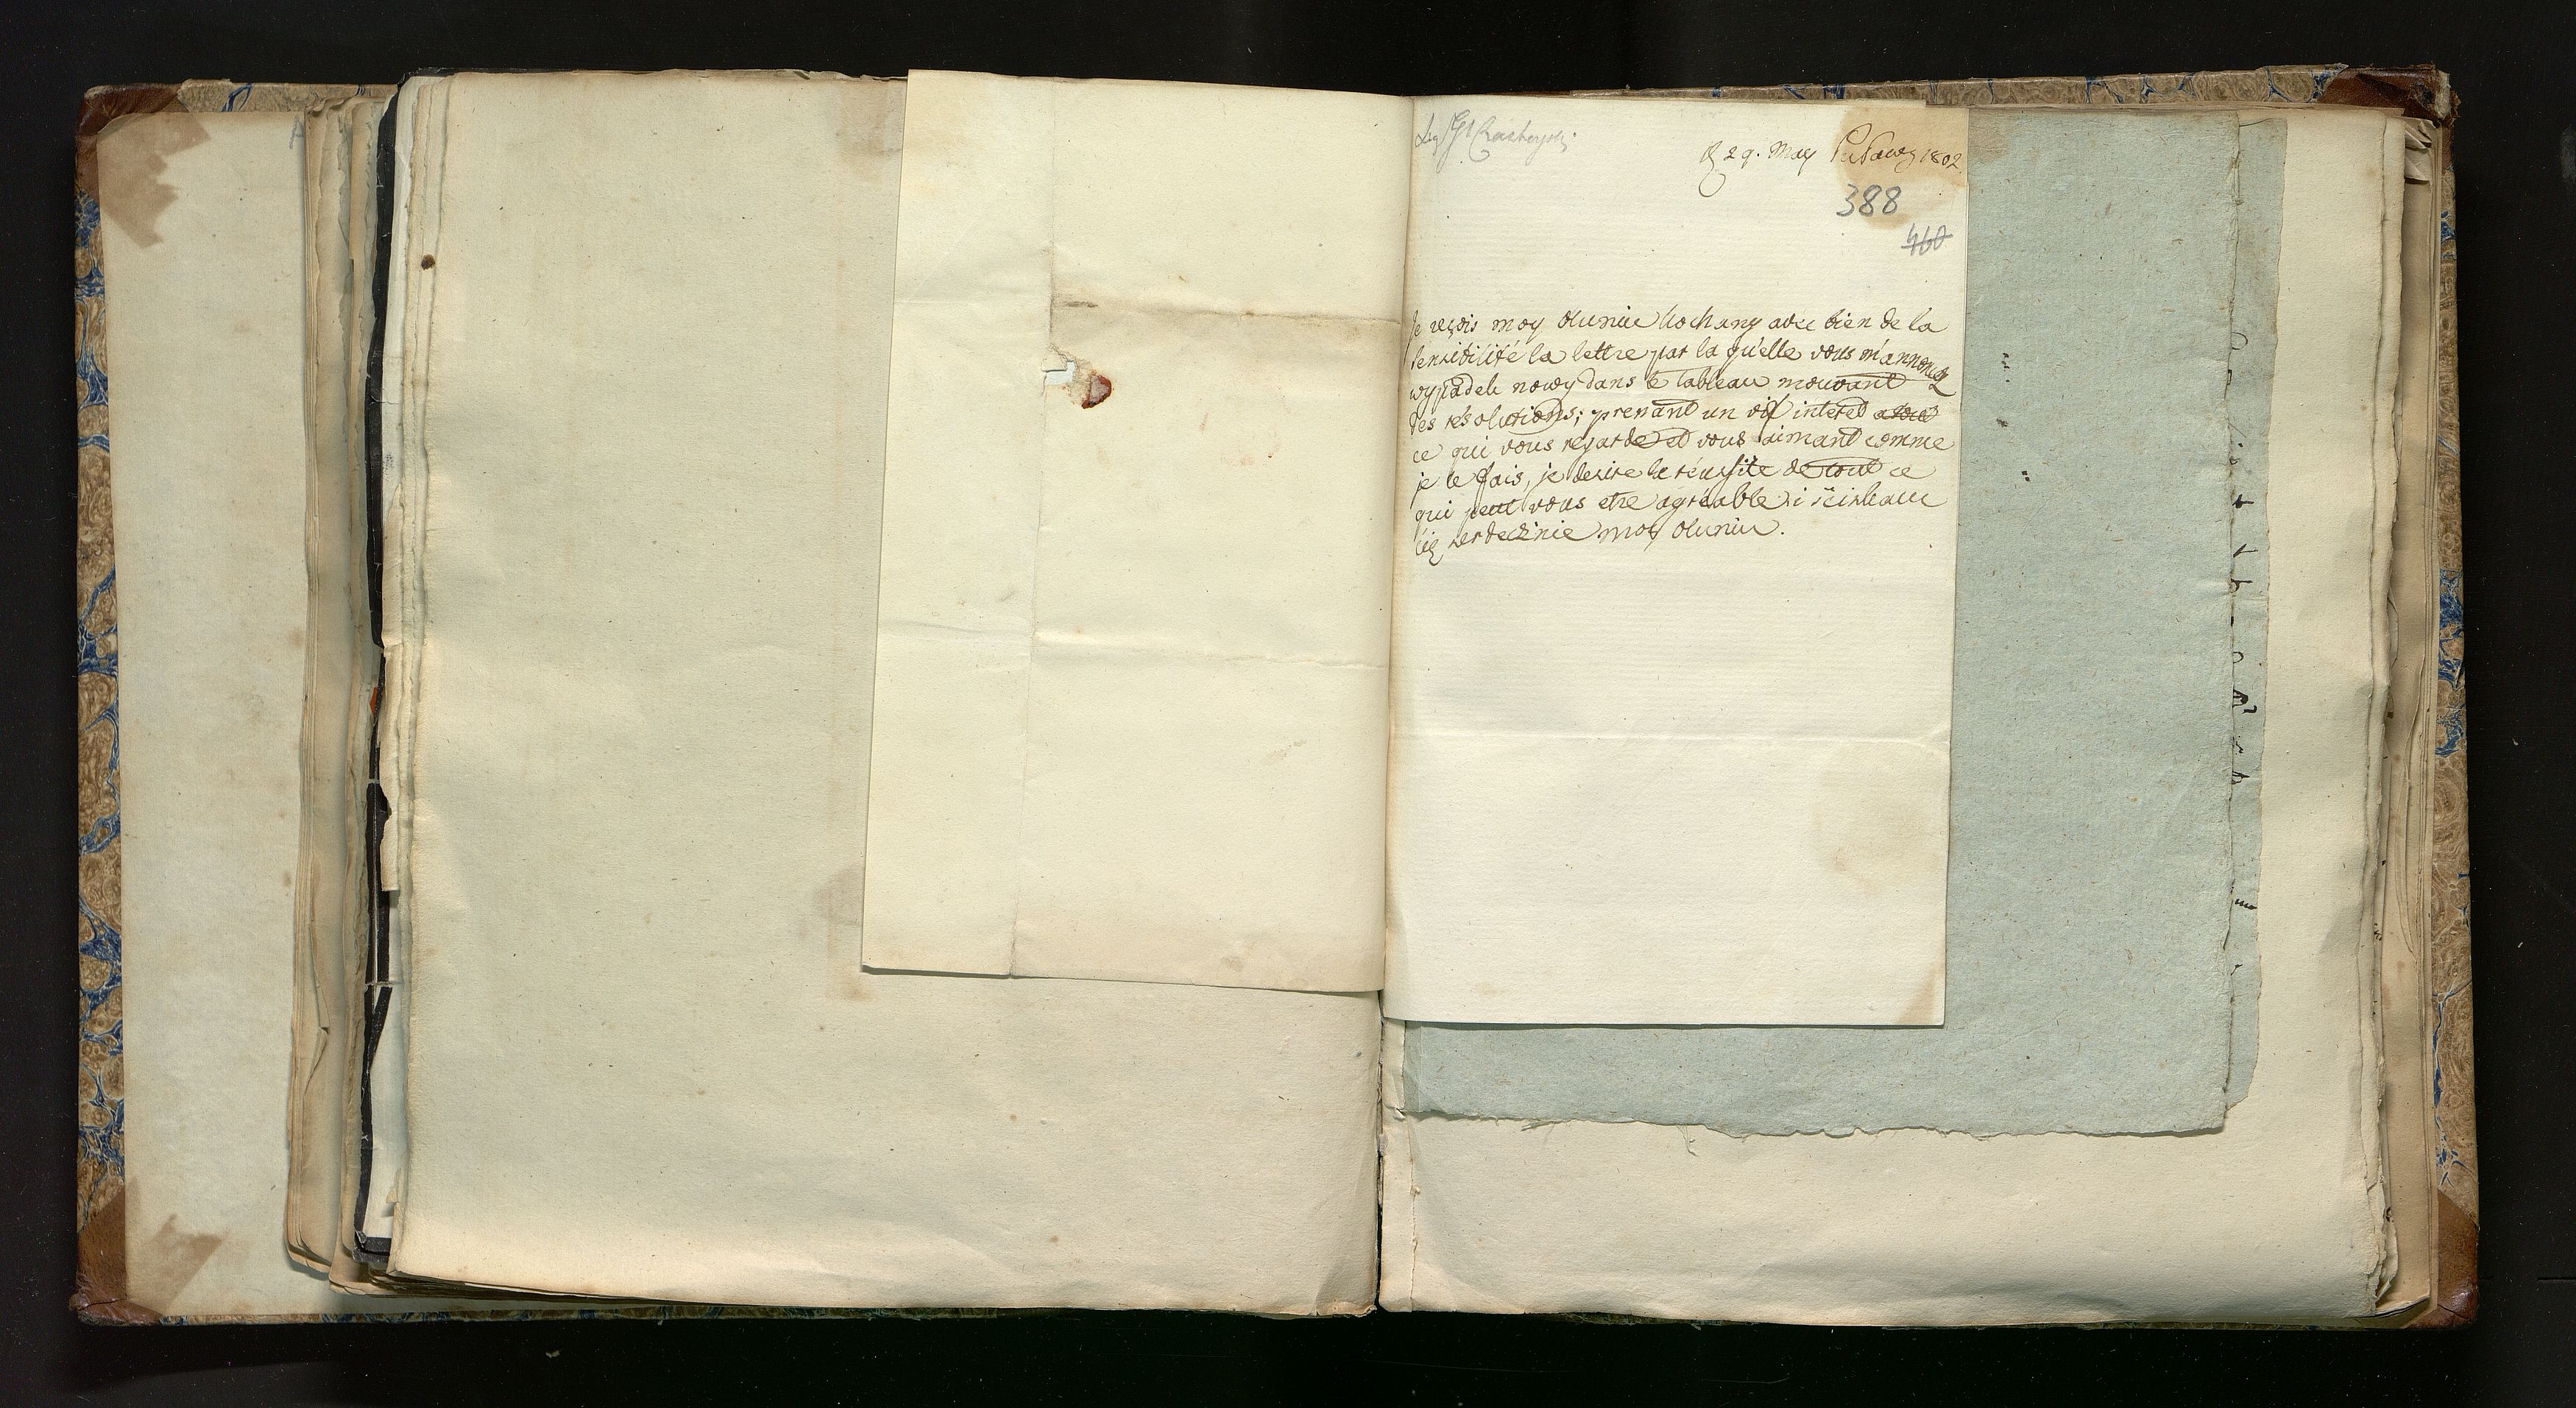 d 29. May Puławy 1802.
388
460
Je reçois moy Oluniu kochany avec bien de la
sensibilité la lettre par la qu'elle vous m'annoncez
wypadek nowy dans le tableau mouvant
des résolutions; prenant un vif intered a tout
ce qui vous regarde et vous aimant comme
je le fais, je desire la réussite de tout ce
qui peut vous etre agréable i sciskam
cię serdecznie moy Oluniu.